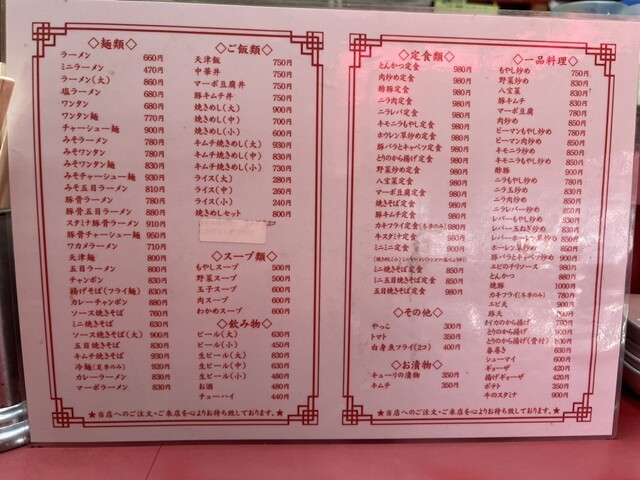 ◇麺類◇
ラーメン 660円
ミニラーメン 470円
ラーメン(大) 860円
塩ラーメン 680円
ワンタン 680円
ワンタン麺 770円
チャーシュー麺 900円
みそラーメン 780円
みそワンタン 780円
みそワンタン麺 830円
みそチャーシュー麺 930円
みそ五目ラーメン 810円
豚骨ラーメン 780円
豚骨五目ラーメン 880円
スタミナ豚骨ラーメン 910円
豚骨チャーシュー麺 950円
ワカメラーメン 710円
天津麺 800円
五目ラーメン 800円
チャンポン 830円
揚げそば(フライ麺) 830円
カレーチャンポン 880円
ソース焼きそば 760円
ミニ焼きそば 630円
ソース焼きそば(大) 900円
五目焼きそば 830円
キムチ焼きそば 920円
冷麺(夏季のみ) 930円
カレーラーメン 830円
マーボラーメン 830円
◇ご飯類◇
天津飯 750円
中華丼 750円
マーボ豆腐丼 750円
豚キムチ丼 750円
焼きめし(大) 900円
焼きめし(中) 700円
焼きめし(小) 600円
キムチ焼きめし(大) 930円
キムチ焼きめし(中) 830円
キムチ焼きめし(小) 730円
ライス(大) 280円
ライス(中) 260円
ライス(小) 240円
焼きめしセット 800円
◇スープ類◇
もやしスープ 500円
野菜スープ 500円
玉子スープ 600円
肉スープ 600円
わかめスープ 600円
◇飲み物◇
ビール(大) 630円
ビール(小) 450円
生ビール(大) 830円
生ビール(中) 630円
生ビール(小) 480円
お酒 480円
チューハイ 440円
★当店へのご注文・ご来店を心よりお待ち致しております。★
◇定食類◇
とんかつ定食 980円
肉炒め定食 980円
酢豚定食 980円
ニラ肉定食 980円
ニラレバ定食 980円
キモニラもやし定食 980円
ホウレン草炒め定食 980円
豚バラとキャベツ定食 980円
とりのから揚げ定食 980円
野菜炒め定食 980円
八宝菜定食 980円
マーボ定食 980円
焼きそば定食 980円
豚キムチ定食 980円
カキフライ定食(冬季のみ) 980円
牛スタミナ定食 980円
ミニミニ定食 900円
ミニ焼きそば定食 850円
五目焼きそば定食 980円
◇その他◇
やっこ 300円
トマト 350円
白身魚フライ(2つ) 400円
◇お漬物◇
キューリの漬物 350円
キムチ 350円
◇一品料理◇
もやし炒め 750円
野菜炒め 830円
八宝菜 830円
豚キムチ 830円
マーボ豆腐 830円
肉炒め 850円
ピーマンもやし炒め 780円
ピーマン肉炒め 850円
キモニラ炒め 850円
キモニラもやし炒め 850円
酢豚 900円
ニラもやし炒め
ニラ玉炒め
ニラ肉炒め 850円
ニラレバー炒め
レバーもやし炒め
レバー玉ねぎ炒め
レバーホーレン草炒め
ホーレン草炒め
豚バラとキャベツ炒め
エビのチリソース
とんかつ 880円
焼豚 1000円
カキフライ(冬季のみ)
エビ天 900円
豚天
イカのから揚げ
とりのから揚げ
とりのから揚げ(骨付)
春巻き
シューマイ
ギョーザ 420円
揚げギョーザ 420円
ポテト 350円
牛のスタミナ 900円
★当店へのご注文・ご来店を心よりお待ち致しております。★